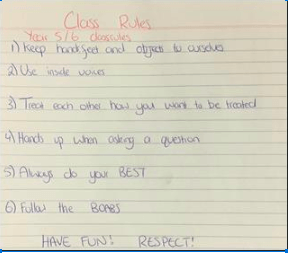 Class Rules
Year 5/6 classrules
1) Keep hands feet and objects to ourselves
2) Use inside voices
3) Treat each other how you want to be treated
4) Hands up when asking a question
5) Always do your BEST
6) Follow the
HAVE FUN! RESPECT!